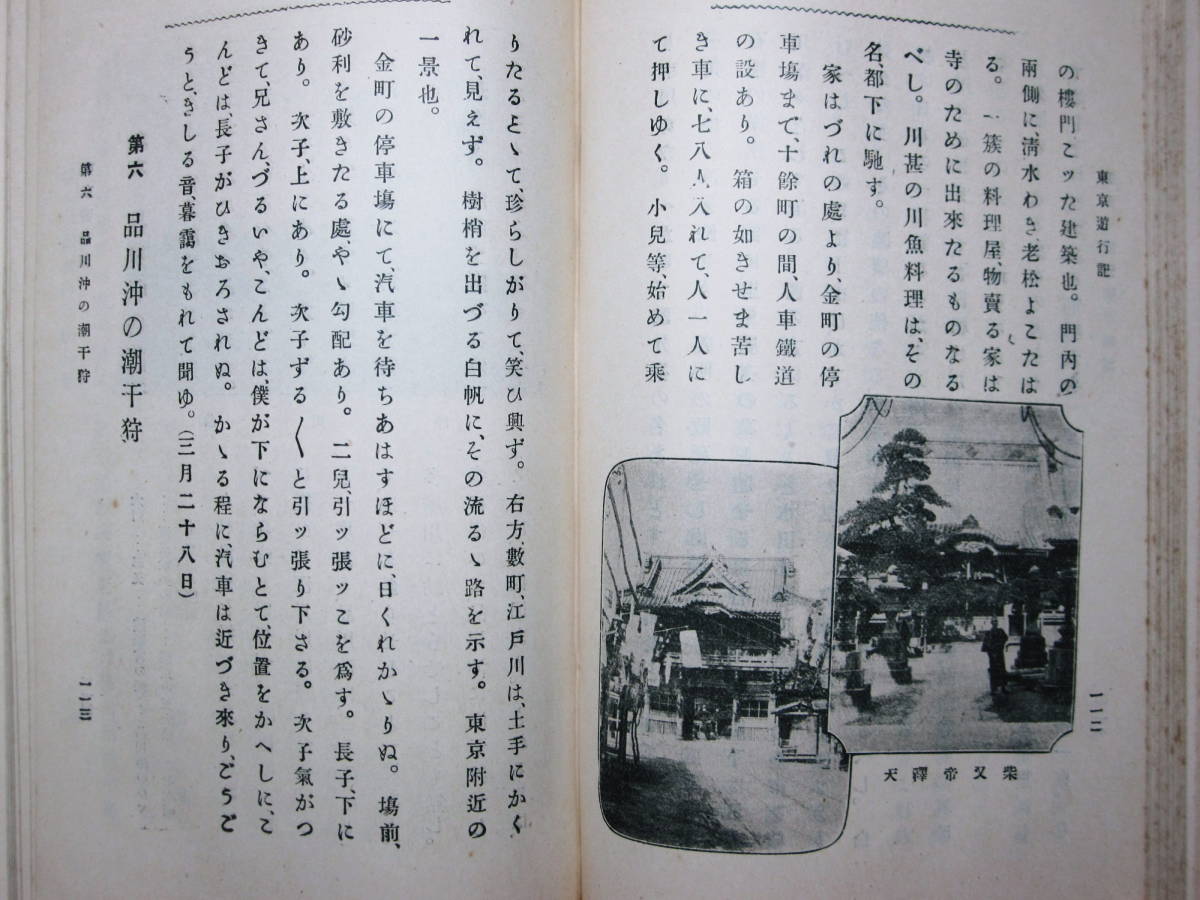 東京遊行記
の樓門、こッた建築也。門內の
兩側に、淸水わき、老松よこたは
る。一簇の料理屋、物賣る家は
寺のために出來たるものなる
べし。川甚の川魚料理は、その
名、都下に馳す。
家はづれの處より、金町の停
車塲まで、十餘町の間、人車鐵道
の設あり。箱の如きせま苦し
き車に、七八人入れて、人一人に
て押しゆく。小兒等、始めて乘
柴又帝釋天
一一二
りたるとて、珍らしがりて、笑ひ興ず。右方、數町、江戶川は、土手にかく
れて、見えず。樹梢を出づる白帆に、その流るゝ路を示す。東京附近の
一景也。
金町の停車塲にて、汽車を待ちあはすほどに、日くれかゝりぬ。塲前、
砂利を敷きたる處、やゝ勾配あり。二兒、引ッ張ッこを爲す。長子、下に
あり。次子、上にあり。次子ずる〱と引ッ張り下さる。次子氣がつ
きて、兄さん、づるいや、こんどは、僕が下にならむとて、位置をかへしに、こ
んどは、長子がひきおろされぬ。かゝる程に、汽車は近づき來り、ごうご
うと、きしる音、暮靄をもれて聞ゆ。(三月二十八日)
第六 品川沖の潮干狩
第六 品川沖の潮干狩
一一三